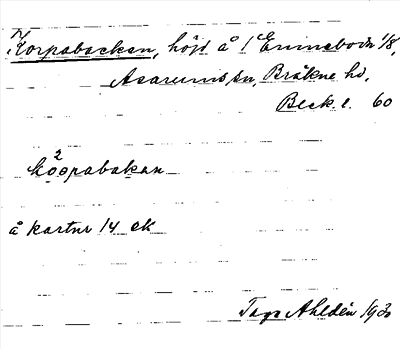 Korpabackan, höjd å 1 Ennebodа 1/8,
Asarums sn, Bräkne hd,
Blek. l. 60
2
kȯrpabakan
å kartnr 14 ek
Tage Ahldén 1930